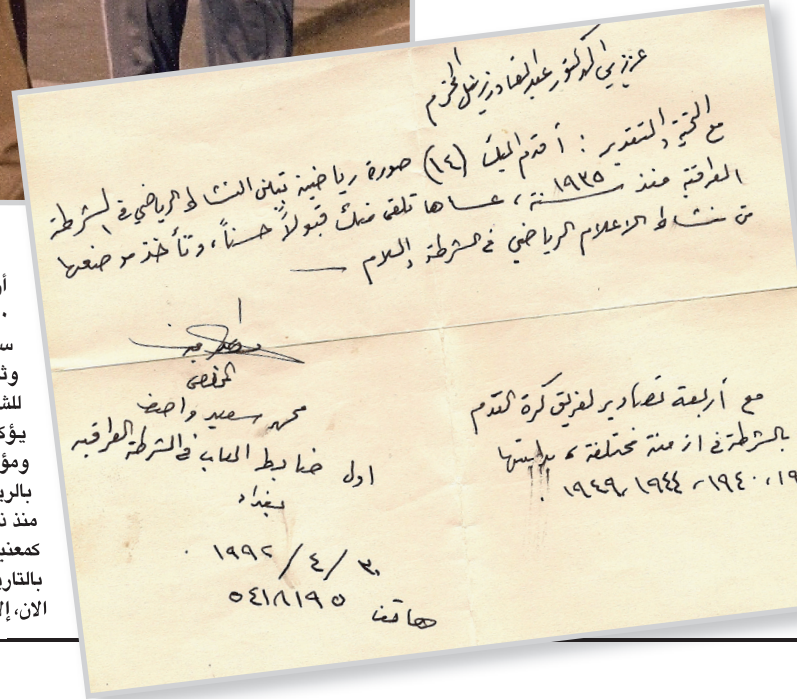 عزيزي الدكتور عبد القادر زينل المحترم
مع التحية والتقدير : أقدم اليك (١٤) صورة رياضية تبين النشاط الرياضي في الشرطة
العراقية منذ سنة ١٩٣٥ ، عساها تلقى منك قبولاً حسناً، وتأخذ موضعها
من نشاط الاعلام الرياضي في الشرطة والسلام
المخلص
محمد سعيد واصف
اول ضابط العاب في الشرطة العراقية
بغداد
٣٠ / ٤ / ١٩٩٢
هاتف ٥٤١٨١٩٥
مع أربعة تصاوير لفريق كرة القدم
بالشرطة في ازمنة مختلفة ،
١٩٤٠ ، ١٩٤٤ ، ١٩٤٩
وثـ
للشـ
يؤكـ
ومؤ
بالريـ
منذ نـ
كمعنيـ
بالتاريـ
الان، إلـ